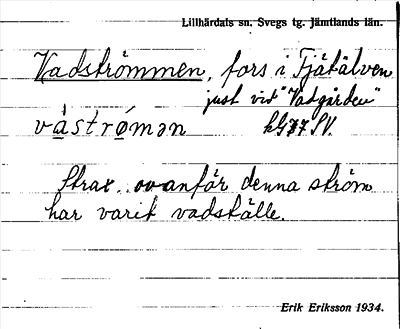 Lillhärdals sn. Svegs tg. Jämtlands län.
Vadströmmen, fors i Fjätälven
just vid "Vadgården"
vástrømən kG77 SV.
Strax ovanför denna ström
har varit vadställe.
Erik Eriksson 1934.